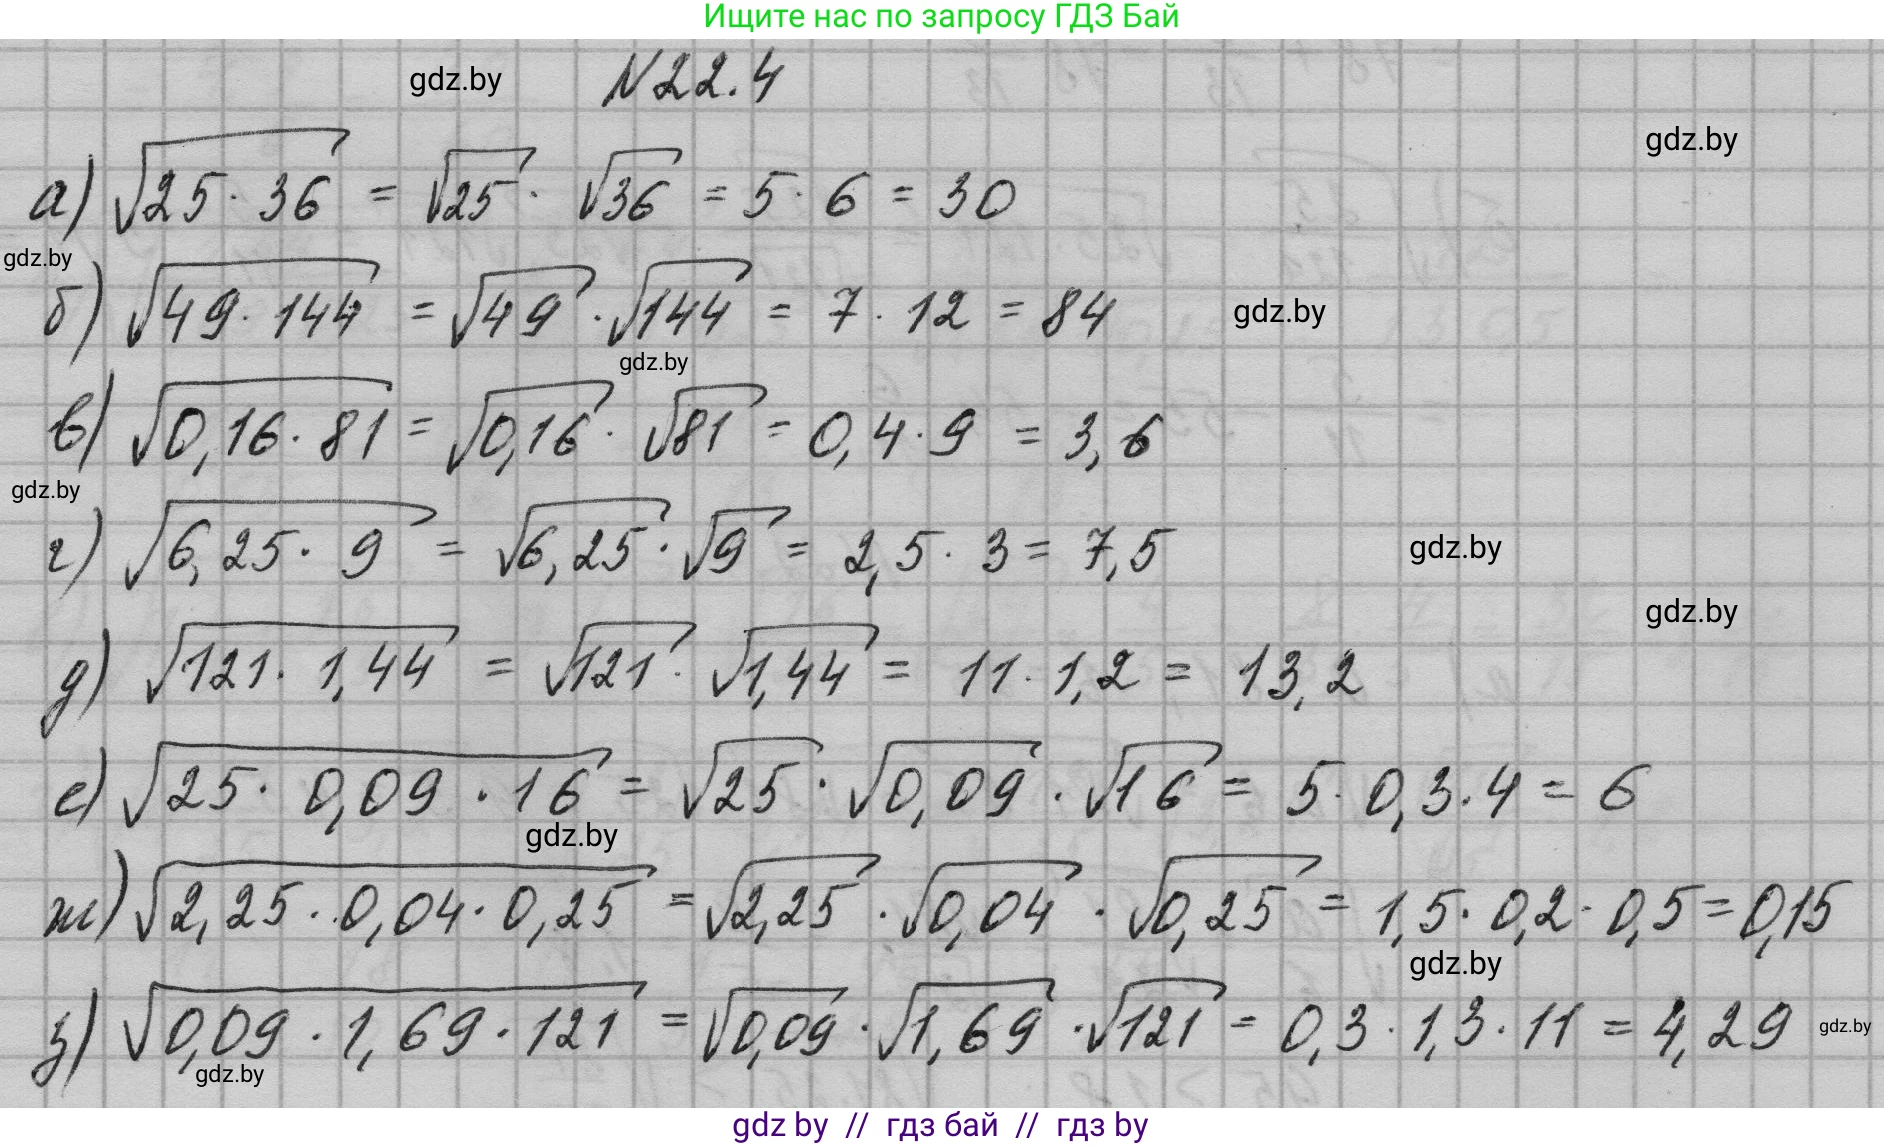 Ищите нас по запросу ГДЗ Бай
gdz.by
N 22.4
gdz.by
а) √25·36 = √25 · √36 = 5 · 6 = 30
gdz.by
б) √49·144 = √49 · √144 = 7 · 12 = 84
gdz.by
gdz.by
в) √0,16·81 = √0,16 · √81 = 0,4 · 9 = 3,6
gdz.by
г) √6,25·9 = √6,25 · √9 = 2,5 · 3 = 7,5
gdz.by
gdz.by
д) √121·1,44 = √121 · √1,44 = 11 · 1,2 = 13,2
е) √25·0,09·16 = √25 · √0,09 · √16 = 5 · 0,3 · 4 = 6
gdz.by
ж) √2,25·0,04·0,25 = √2,25 · √0,04 · √0,25 = 1,5 · 0,2 · 0,5 = 0,15
gdz.by
з) √0,09·1,69·121 = √0,09 · √1,69 · √121 = 0,3 · 1,3 · 11 = 4,29
gdz.by
gdz.by
gdz by // гдз бай // гдз by